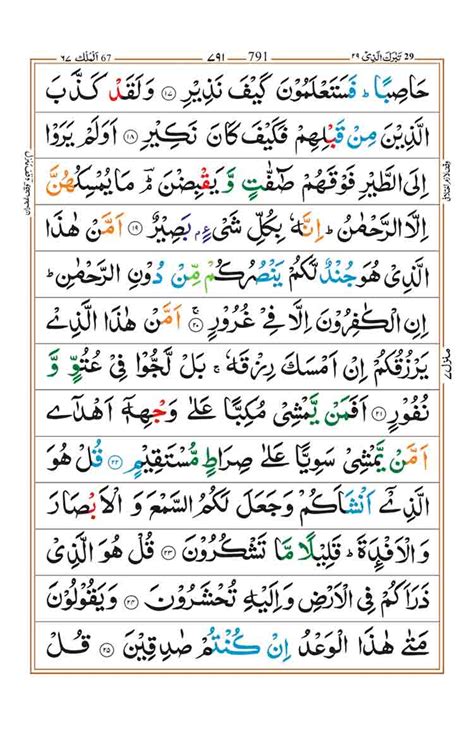 29 تبٰرک الذی ۲۹ 791 ۷۹۱ 67 الملک ۶۷
حَاصِبًا ؕ فَسَتَعْلَمُوْنَ كَيْفَ نَذِيْرِ ۝۱۷ وَلَقَدْ كَذَّبَ
الَّذِيْنَ مِنْ قَبْلِهِمْ فَكَيْفَ كَانَ نَكِيْرِ ۝۱۸ اَوَلَمْ يَرَوْا
اِلَى الطَّيْرِ فَوْقَهُمْ صٰٓفّٰتٍ وَّيَقْبِضْنَ ؔۘؕ مَا يُمْسِكُهُنَّ
اِلَّا الرَّحْمٰنُ ؕ اِنَّهٗ بِكُلِّ شَىْءٍۭ بَصِيْرٌ ۝۱۹ اَمَّنْ هٰذَا
الَّذِىْ هُوَ جُنْدٌ لَّكُمْ يَنْصُرُكُمْ مِّنْ دُوْنِ الرَّحْمٰنِ ؕ
اِنِ الْكٰفِرُوْنَ اِلَّا فِىْ غُرُوْرٍ ۝۲۰ اَمَّنْ هٰذَا الَّذِىْ
يَرْزُقُكُمْ اِنْ اَمْسَكَ رِزْقَهٗ ۚ بَلْ لَّجُّوْا فِىْ عُتُوٍّ وَّ
نُفُوْرٍ ۝۲۱ اَفَمَنْ يَّمْشِىْ مُكِبًّا عَلٰى وَجْهِهٖۤ اَهْدٰٓى
اَمَّنْ يَّمْشِىْ سَوِيًّا عَلٰى صِرَاطٍ مُّسْتَقِيْمٍ ۝۲۲ قُلْ هُوَ
الَّذِىْۤ اَنْشَاَكُمْ وَجَعَلَ لَكُمُ السَّمْعَ وَ الْاَبْصَارَ
وَالْاَفْـِٕدَةَ ؕ قَلِيْلًا مَّا تَشْكُرُوْنَ ۝۲۳ قُلْ هُوَ الَّذِىْ
ذَرَاَكُمْ فِى الْاَرْضِ وَاِلَيْهِ تُحْشَرُوْنَ ۝۲۴ وَيَقُوْلُوْنَ
مَتٰى هٰذَا الْوَعْدُ اِنْ كُنْتُمْ صٰدِقِيْنَ ۝۲۵ قُلْ